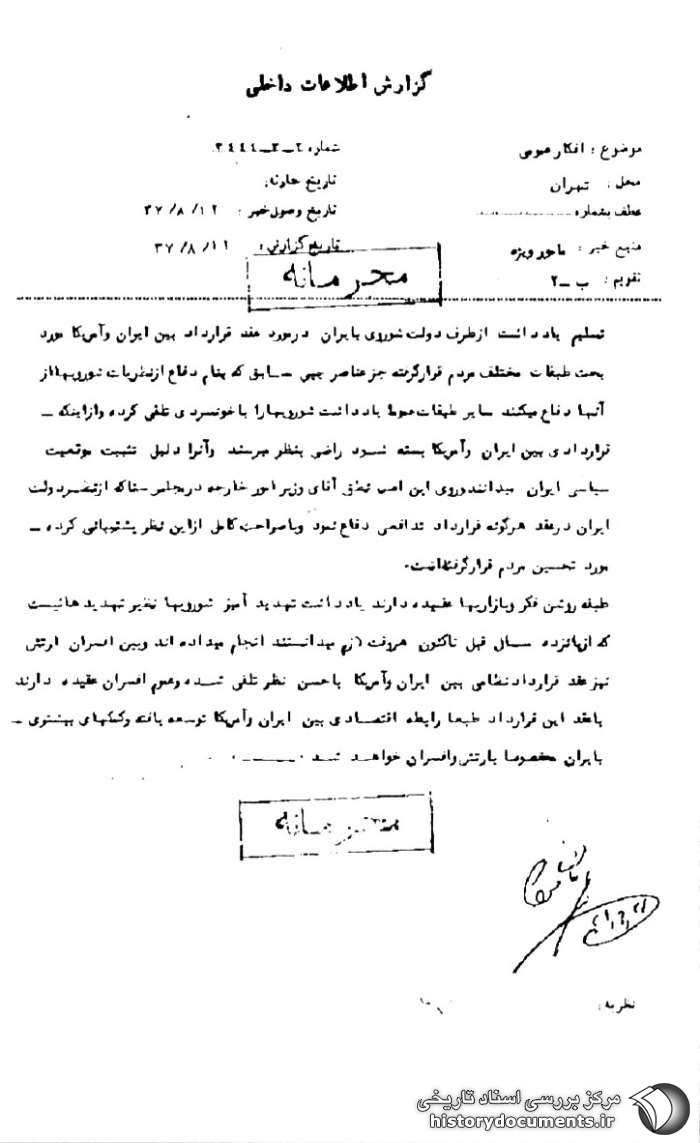 گزارش اطلاعات داخلی
موضوع : افکار عمومی
شماره ۲ـ۳ـ۲۴۴۴
محل : تهران
تاریخ حادثه :
عطف بشماره
تاریخ وصول خبر : ۳۷/۸/۱۲
منبع خبر : مامور ویژه
تاریخ گزارش : ۳۷/۸/۱۲
تقویم : ب ـ۲
محرمانه
تسلیم یادداشت از طرف دولت شوروی بایران در مورد عقد قرارداد بین ایران وآمریکا مورد
بحث طبقات مختلف مردم قرارگرفته جز عناصر چپی سابق که بنام دفاع ازنظریات شورویها از
آنها دفاع میکنند سایر طبقات عموما یادداشت شورویها را با خونسردی تلقی کرده وازاینکه ـ
قراردادی بین ایران وآمریکا بسته شود راضی بنظر میرسند وآنرا دلیل تثبیت موقعیت
سیاسی ایران میدانند وروی این اصل نطق آقای وزیر امور خارجه در مجلس سنا که از دولت
ایران در عقد هرگونه قرارداد تدافعی دفاع نمود وبا صراحت کامل از این نظر پشتیبانی کرده ـ
مورد تحسین مردم قرارگرفته است.
طبقه روشن فکر وبازاریها عقیده دارند یادداشت تهدید آمیز شورویها نظیر تهدید هائیست
که از پانزده سال قبل تاکنون هروقت لازم میدانستند انجام میداده اند وبین افسران ارتش
نیز عقد قرارداد نظامی بین ایران وآمریکا باحسن نظر تلقی شده وعموم افسران عقیده دارند
باعقد این قرارداد طبعا رابطه اقتصادی بین ایران وآمریکا توسعه یافته وکمکهای بیشتری ـ
بایران مخصوصا بارتش وافسران خواهد شد .
محرمانه
نظریه :
مرکز بررسی اسناد تاریخی
historydocuments.ir